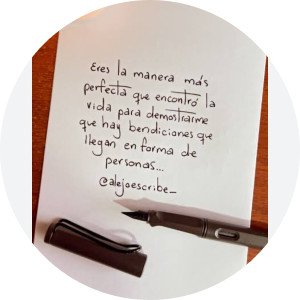 Eres la manera más
perfecta que encontró la
vida para demostrarme
que hay bendiciones que
llegan en forma de
personas...
@alejoescribe_